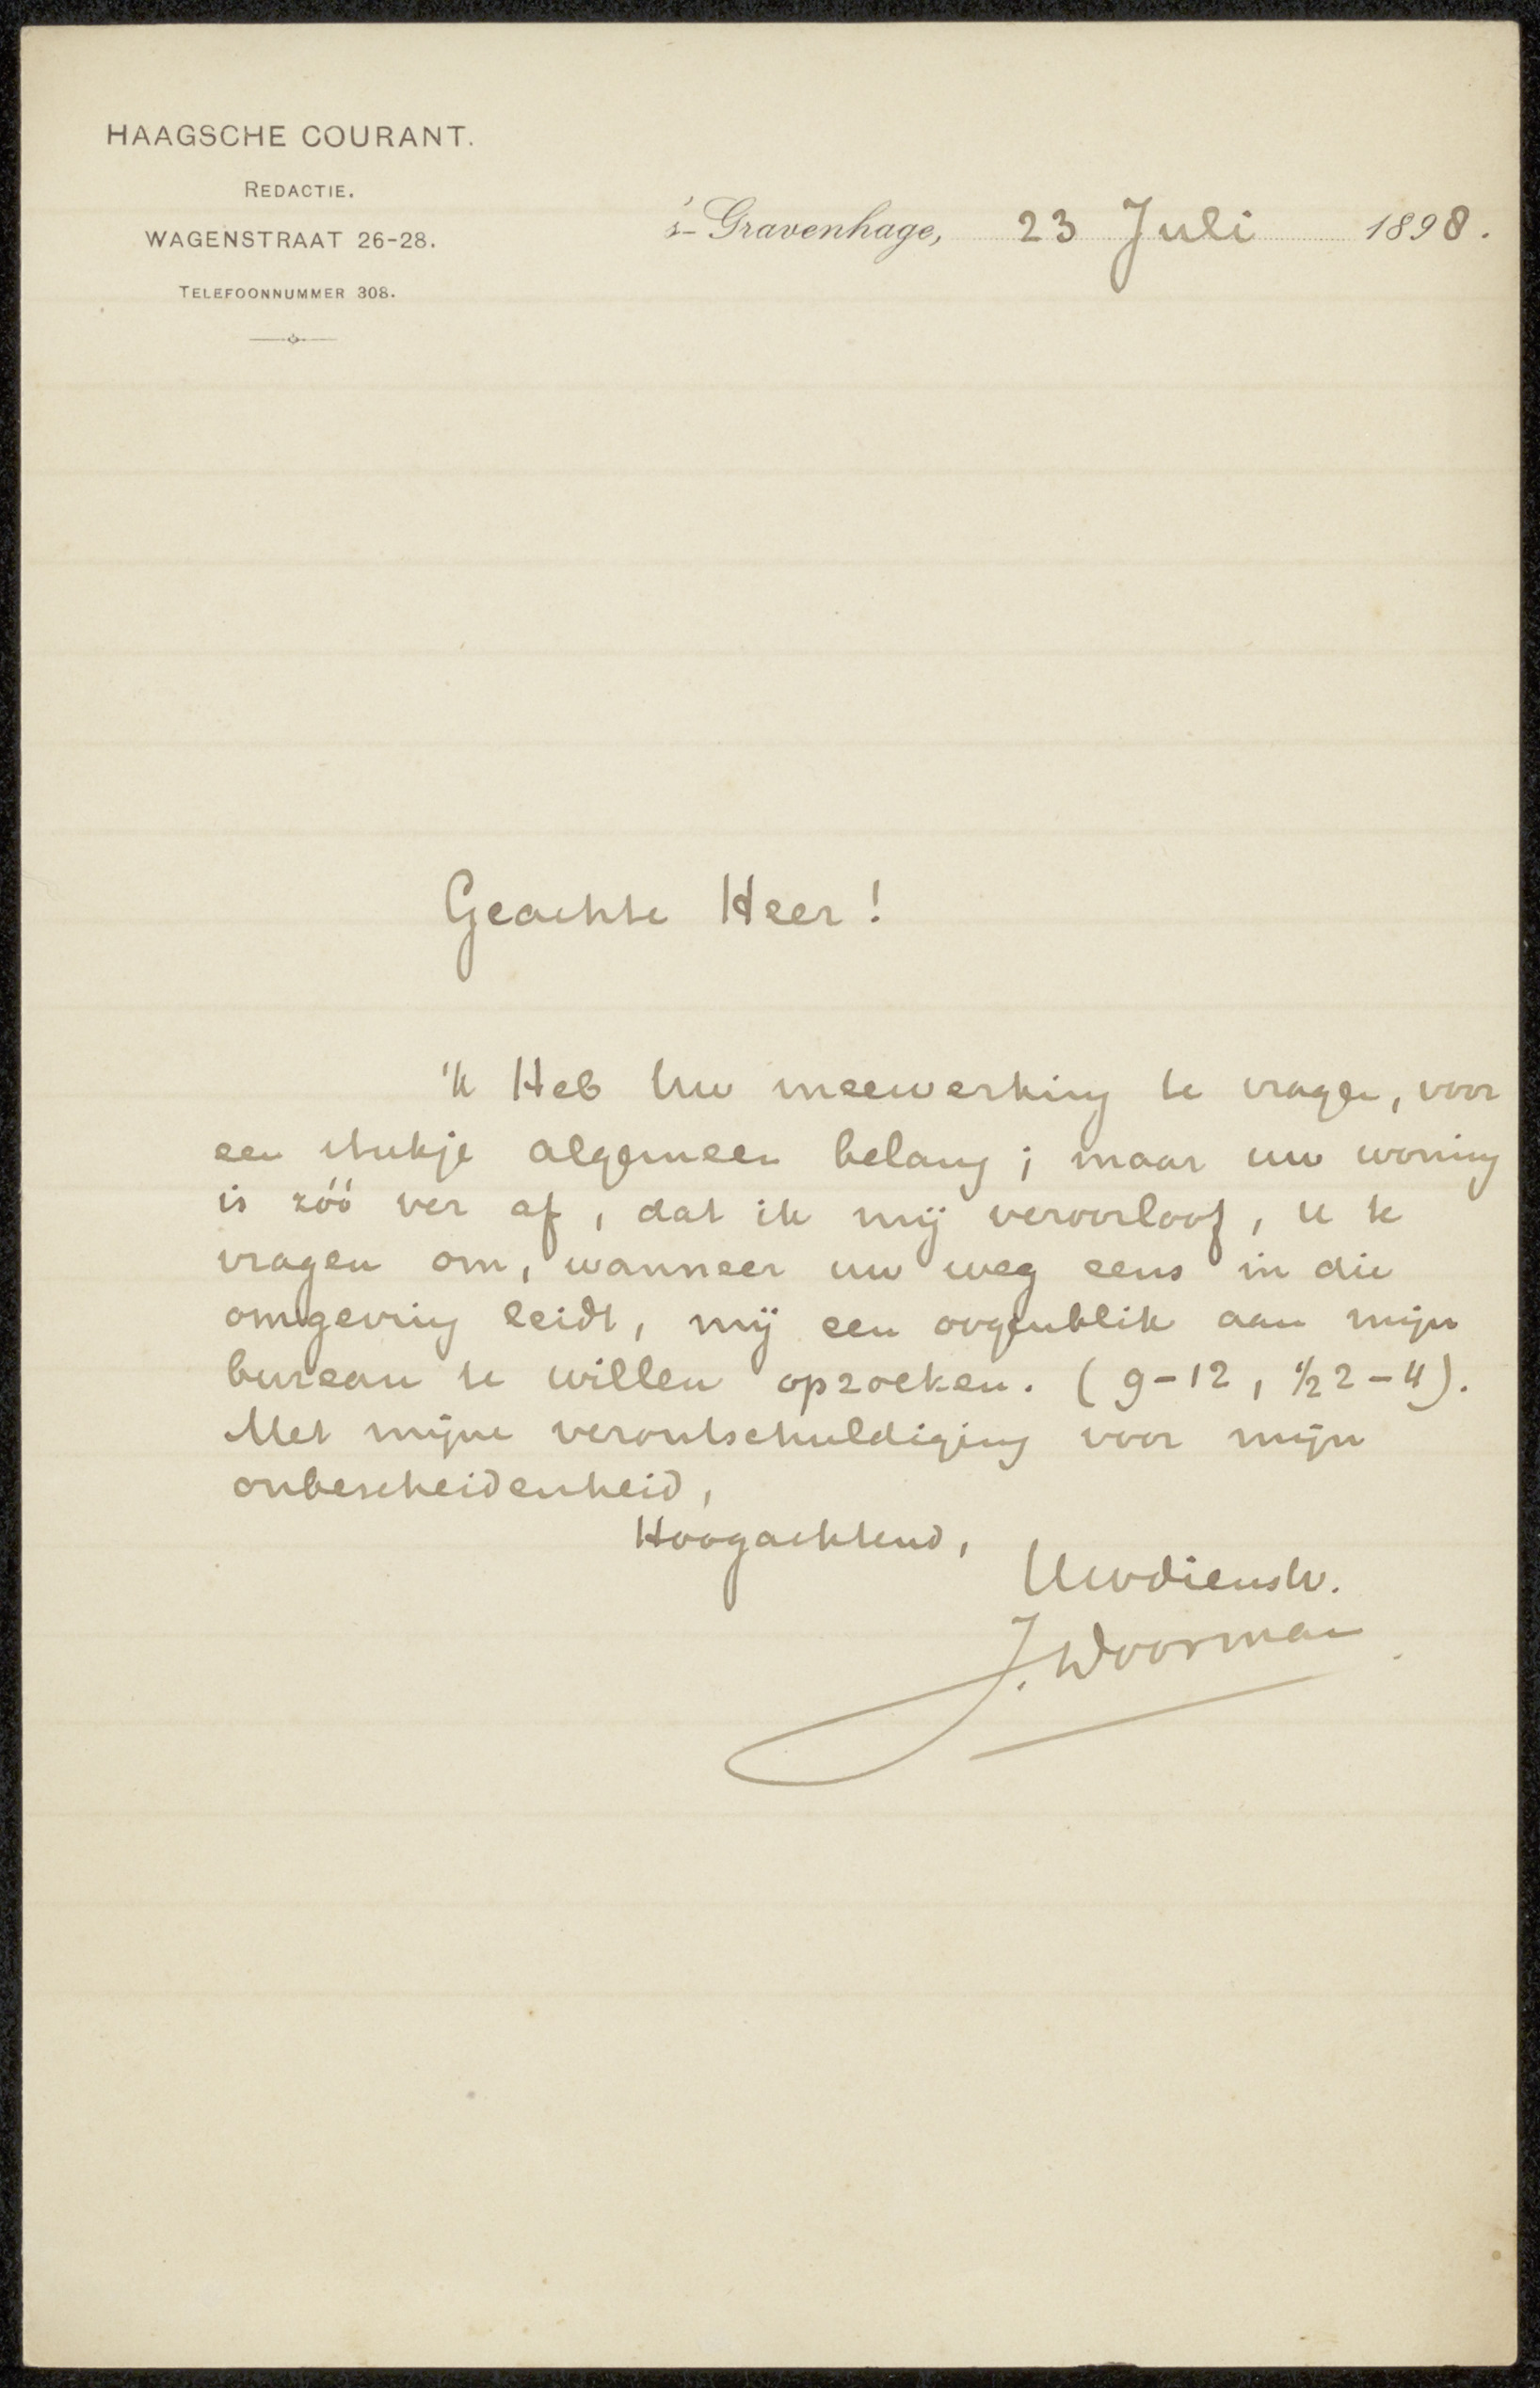 HAAGSCHE COURANT.
REDACTIE.
WAGENSTRAAT 26-28.
TELEFOONNUMMER 308.
's-Gravenhage, 23 Juli 1898.
Geachte Heer!
'k Heb Uw meewerking te vragen, voor
een stukje algemeen belang; maar uw woning
is zóó ver af, dat ik mij veroorloof, u te
vragen om, wanneer uw weg eens in die
omgeving leidt, mij een oogenblik aan mijn
bureau te willen opzoeken. (9-12, ½2-4).
Met mijne verontschuldiging voor mijn
onbescheidenheid,
Hoogachtend,
Uwdienstw.
J. Doorman